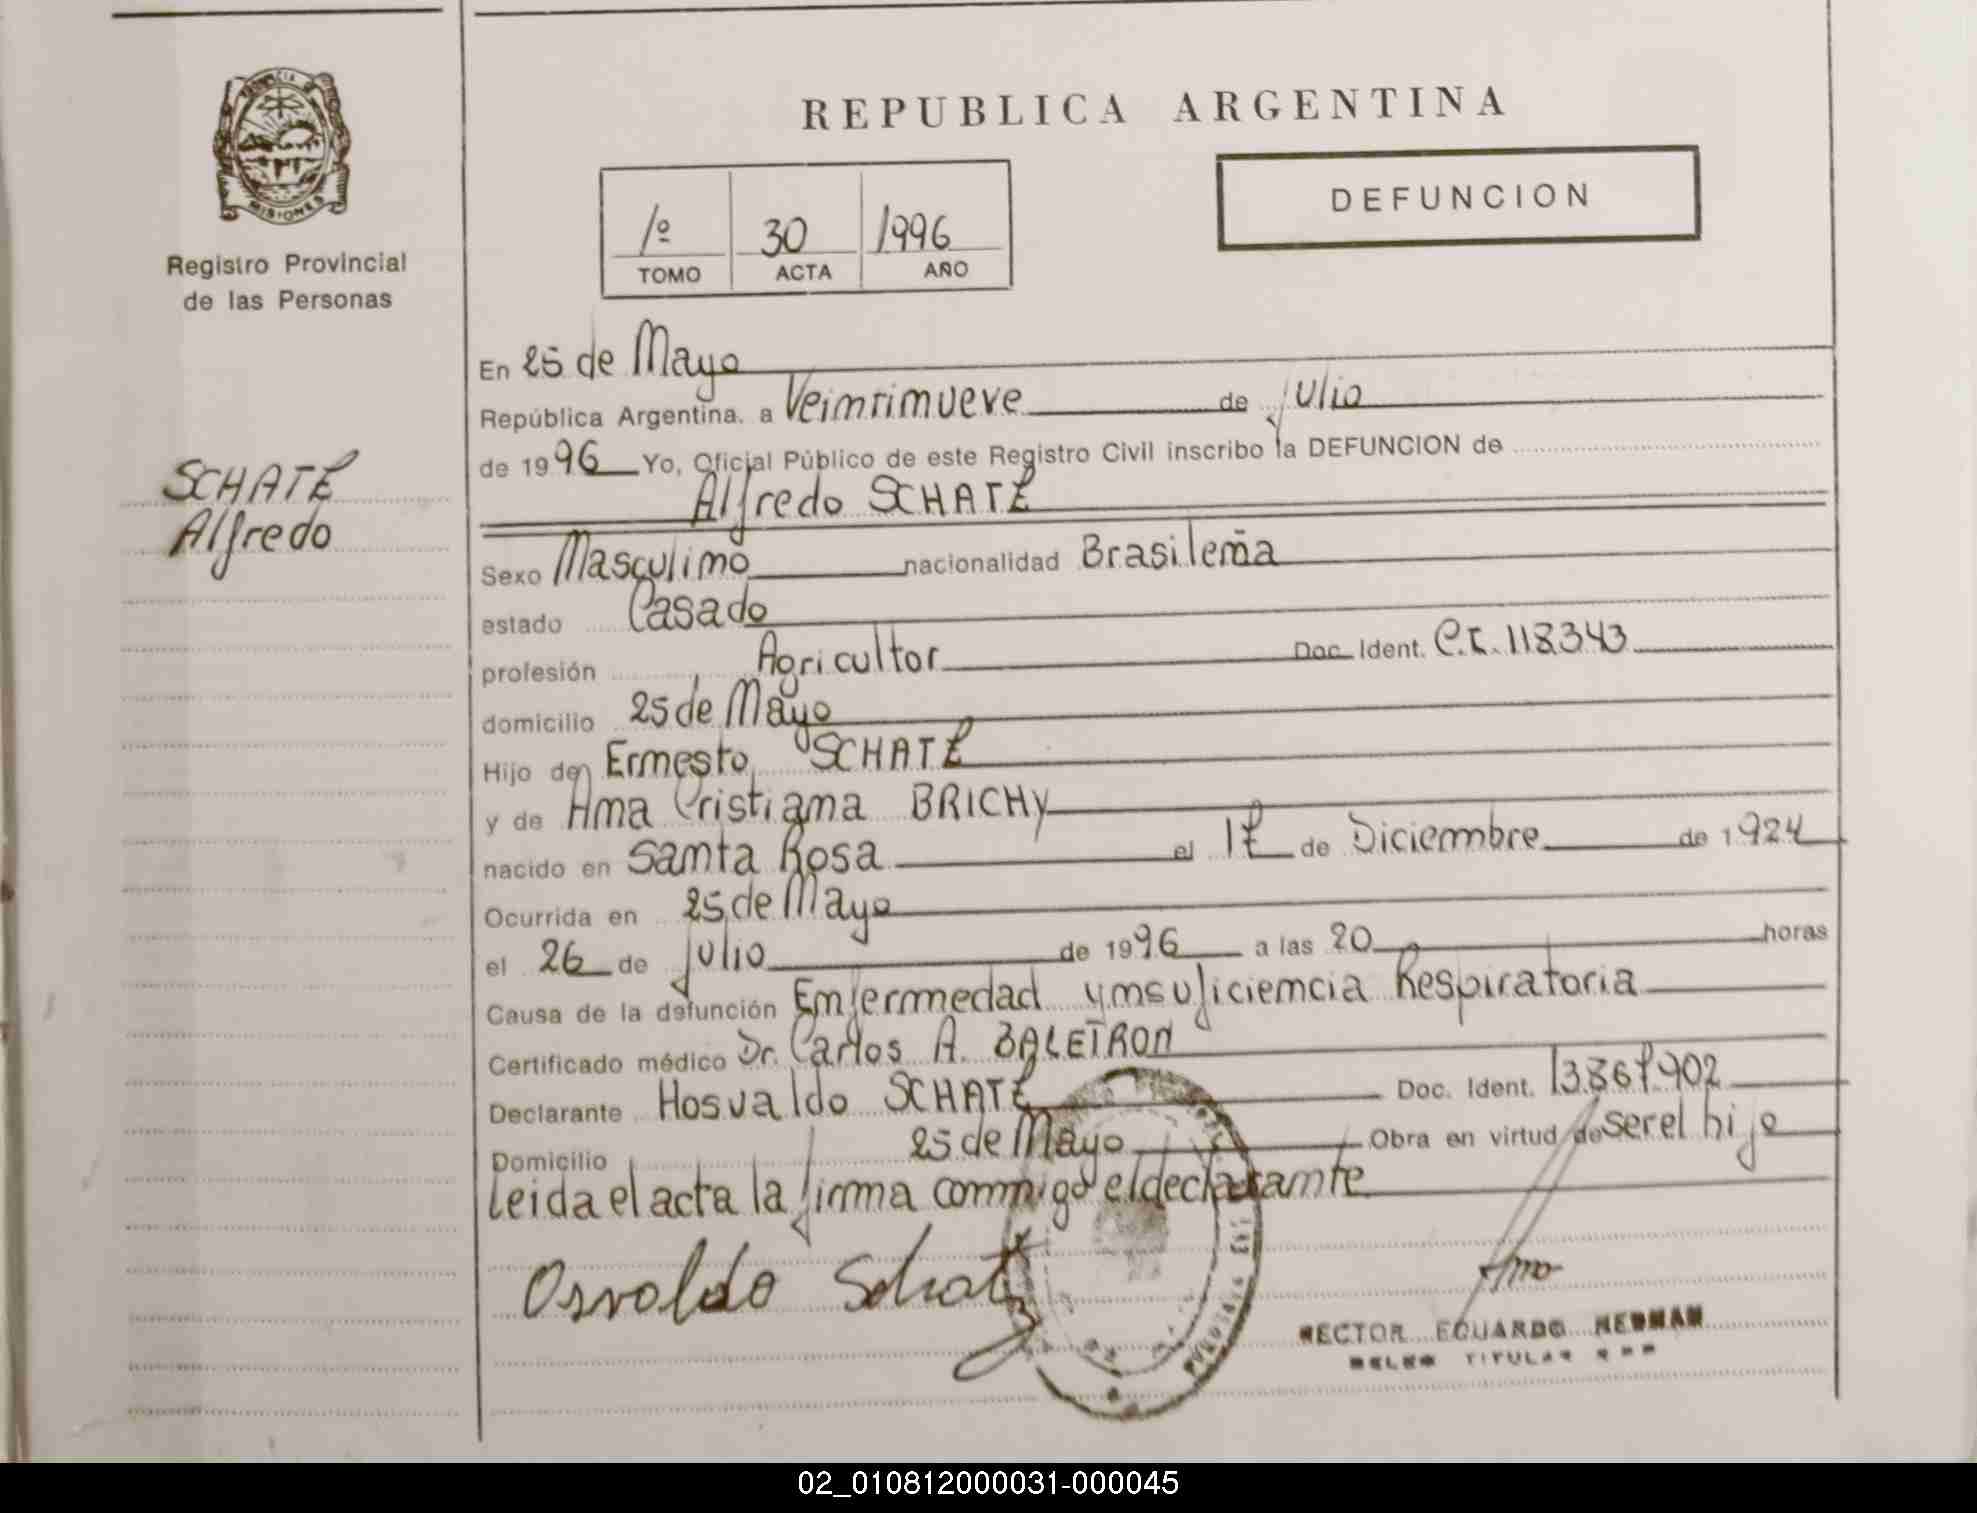 REPUBLICA ARGENTINA
PROVINCIA DE MISIONES
Registro Provincial
de las Personas
DEFUNCION
1º 30 1996
TOMO ACTA AÑO
SCHATZ
Alfredo
En 25 de Mayo
República Argentina. a Veintinueve de julio
de 1996 Yo, Oficial Público de este Registro Civil inscribo la DEFUNCION de
Alfredo SCHATZ
Sexo Masculino nacionalidad Brasileña
estado Casado
profesión Agricultor Doc. Ident. C.I. 118.343
domicilio 25 de Mayo
Hijo de Ernesto SCHATZ
y de Ana Cristiana BRICHY
nacido en Santa Rosa el 17 de Diciembre de 1924
Ocurrida en 25 de Mayo
el 26 de julio de 1996 a las 20 horas
Causa de la defunción Enfermedad y insuficiencia Respiratoria
Certificado médico Dr. Carlos A. BALEIRON
Declarante Hosvaldo SCHATZ Doc. Ident. 13.867.902
Domicilio 25 de Mayo Obra en virtud de ser el hijo
leida el acta la firma conmigo el declarante
Osvaldo Schatz
HECTOR EDUARDO
TITULAR
02_010812000031-000045